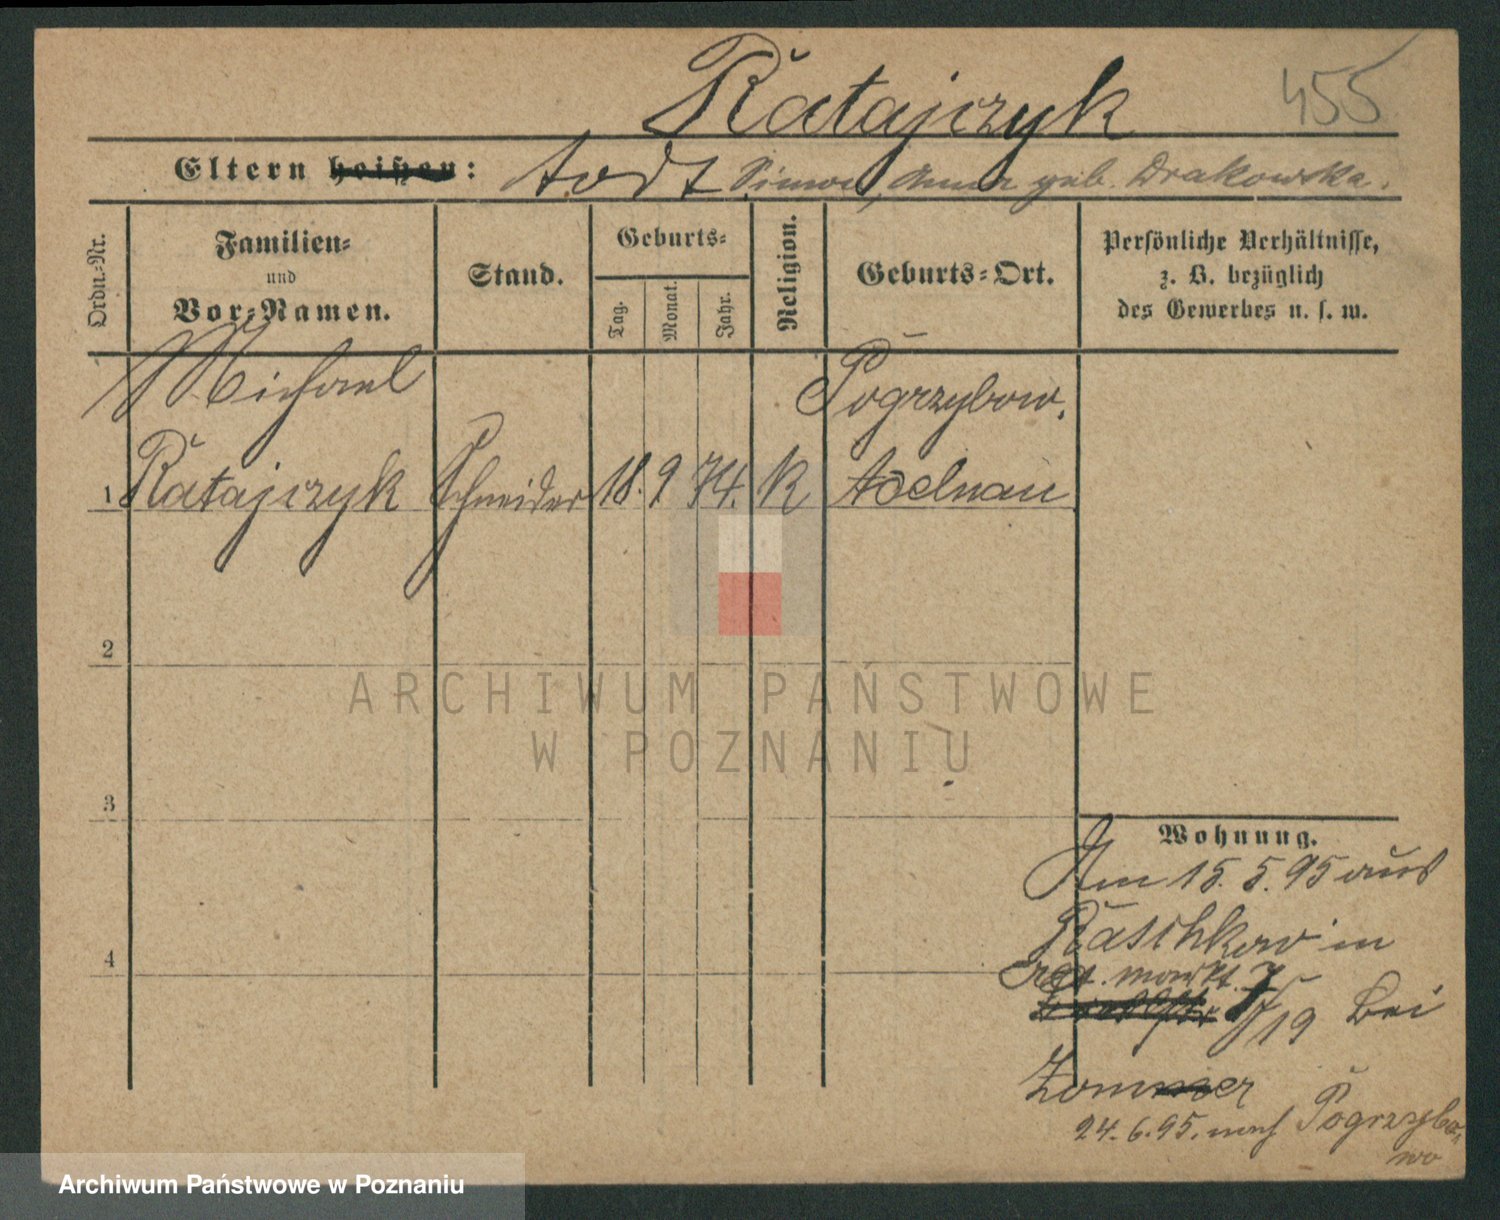 Ratajczyk 455
Eltern heißen: todt Simon, Anna geb. Drakowska.
Ordn.-Nr.
Familien-
und
Vor-Namen.
Stand.
Geburts-
Tag.
Monat.
Jahr.
Religion.
Geburts-Ort.
Persönliche Verhältnisse,
z. B. bezüglich
des Gewerbes u. s. w.
Michael
Pogrzybow.
1 Ratajczyk Schneider 18. 9 74. K Adelnau
2
ARCHIWUM PAŃSTWOWE
W POZNANIU
3
Wohnung.
Am 15. 5. 95 aus
Raschkow in
4
markt. 7
19 bei
Zommer
24. 6. 95. nach Pogrzybo-
wo
Archiwum Państwowe w Poznaniu